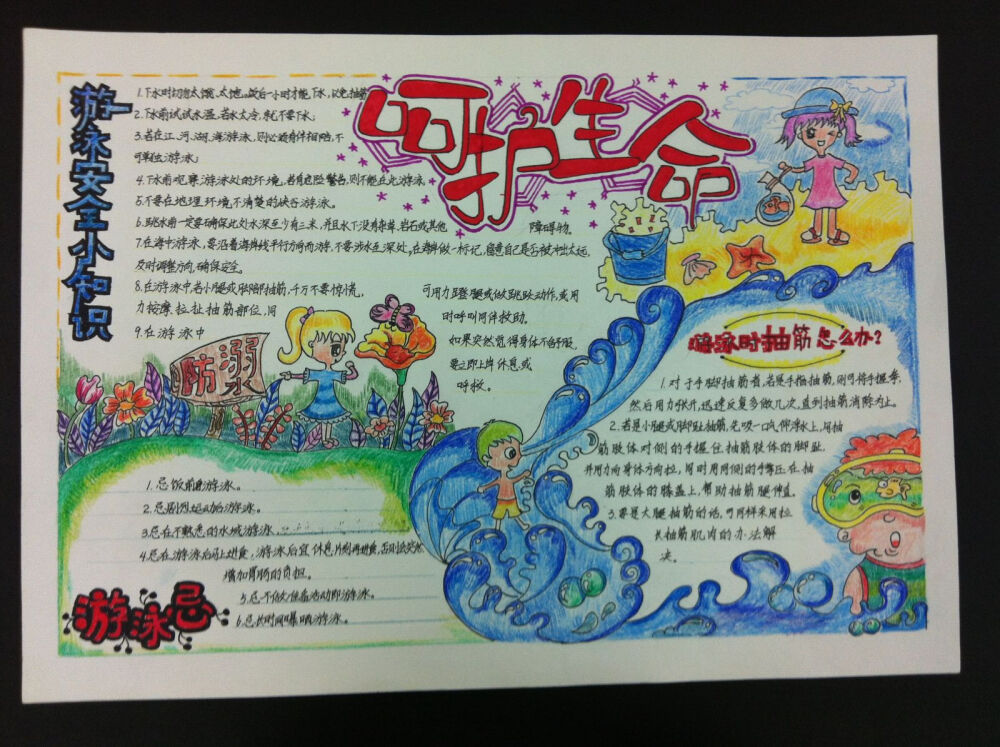 呵护生命
游泳安全小知识
1.下水时切勿太饿、太饱。饭后一小时才能下水,以免抽筋
2.下水前试试水温,若水太冷,就不要下水。
3.若在江、河、湖、海游泳,则必须有伴相陪,不
可单独游泳。
4.下水前观察游泳处的环境,若有危险警告,则不能在此游泳。
5.不要在地理环境不清楚的峡谷游泳。
6.跳水前一定要确保此处水深至少有三米,并且水下没有杂草、岩石或其他 障碍物。
7.在海中游泳,要沿着海岸线平行方向而游,不要涉水至深处,在海岸做一标记,留意自己是否被冲出太远,
及时调整方向,确保安全。
8.在游泳中,若小腿或脚部抽筋,千万不要惊慌, 可用力蹬腿或做跳跃动作,或用
力按摩、拉扯抽筋部位,同 时呼叫同伴救助。
9.在游泳中 如果突然觉得身体不舒服,
要立即上岸休息或
呼救。
防溺
游泳时抽筋怎么办?
1.对于手脚抽筋者,若是手指抽筋,则可将手握拳,
然后用力张开,迅速反复多做几次,直到抽筋消除为止。
2.若是小腿或脚趾抽筋,先吸一口气仰浮水上,用抽
筋肢体对侧的手握住抽筋肢体的脚趾,
并用力向身体方向拉,同时用同侧的手掌压在抽
筋肢体的膝盖上,帮助抽筋腿伸直。
3.要是大腿抽筋的话,可同样采用拉
长抽筋肌肉的办法解
决。
1.忌饭前饭后游泳。
2.忌剧烈运动后游泳。
3.忌在不熟悉的水域游泳
4.忌在游泳后马上进食,游泳后宜休息片刻再进食,否则会突然
增加胃肠的负担。
5.忌不做准备活动即游泳。
6.忌长时间曝晒游泳。
游泳忌